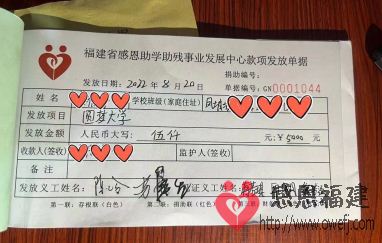 福建省感恩助学助残事业发展中心款项发放单据
捐助编号:
发放日期: 2022年8月20 单据编号:GN0001044
姓名 学校班级(家庭住址)
发放项目 圆梦大学
发放金额 人民币大写: 伍仟 元;¥5000 元
收款人(签收) 监护人(签收)
备注
发放义工姓名: 证义工姓名:
第一联:存根联(白色) 第二联:捐助联(红色) 第三联:
感恩福建
http://www.owefj.com